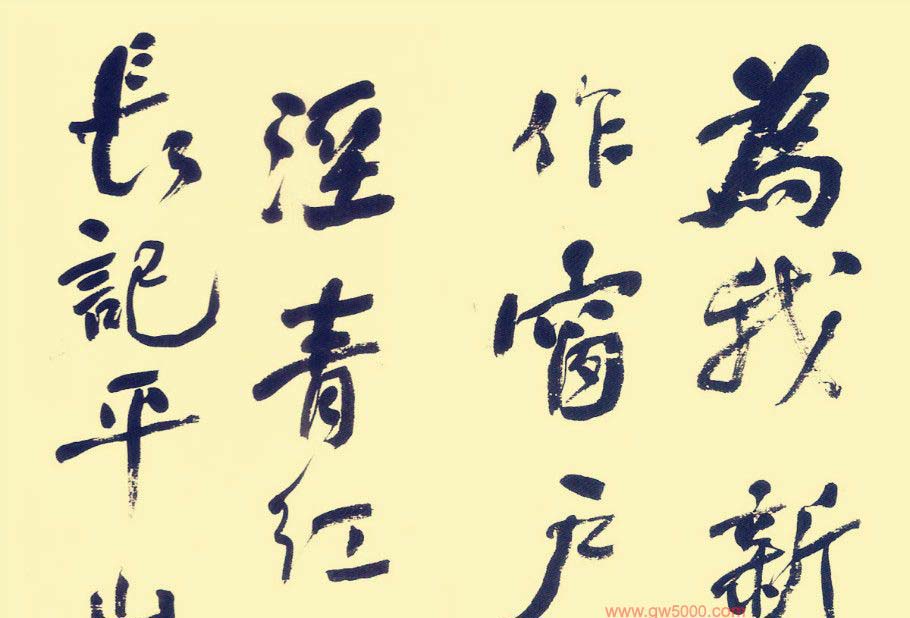 為我新
作窗户
溼青紅
長記平山
www.qw5000.com